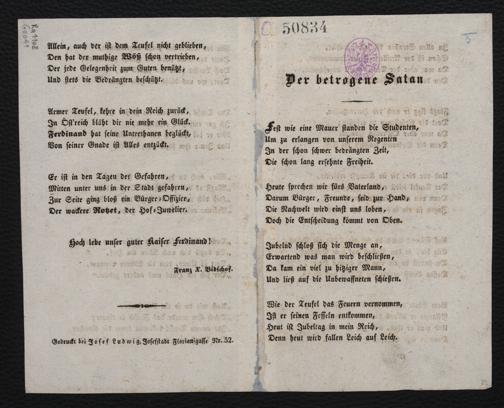 50834
Der betrogene Satan
Fest wie eine Mauer standen die Studenten,
Um zu erlangen von unserem Regenten
In der schon schwer bedrängten Zeit,
Die schon lang ersehnte Freiheit.
Heute sprechen wir fürs Vaterland,
Darum Bürger, Freunde, seid zur Hand,
Die Nachwelt wird einst uns loben,
Doch die Entscheidung kömmt von Oben.
Jubelnd schloß sich die Menge an,
Erwartend was man wird beschließen,
Da kam ein viel zu hitziger Mann,
Und ließ auf die Unbewaffneten schießen.
Wie der Teufel das Feuern vernommen,
Ist er seinen Fesseln entkommen,
Heut ist Jubeltag in mein Reich,
Denn heut wird fallen Leich auf Leich.
Allein, auch der ist dem Teufel nicht geblieben,
Den hat der muthige Böß schon vertrieben,
Der jede Gelegenheit zum Guten benützt,
Und stets die Bedrängten beschützt.
Armer Teufel, kehre in dein Reich zurück,
In Öst'reich blüht dir nie mehr ein Glück.
Ferdinand hat seine Unterthanen beglückt,
Von seiner Gnade ist Alles entzückt.
Er ist in den Tagen der Gefahren,
Mitten unter uns in der Stadt gefahren,
Zur Seite ging bloß ein Bürger-Offizier,
Der wackere Rotzet, der Hof-Juwelier.
Hoch lebe unser guter Kaiser Ferdinand!
Franz X. Bidschof.
Gedruckt bei Josef Ludwig, Josefstadt Florianigasse Nr. 52.